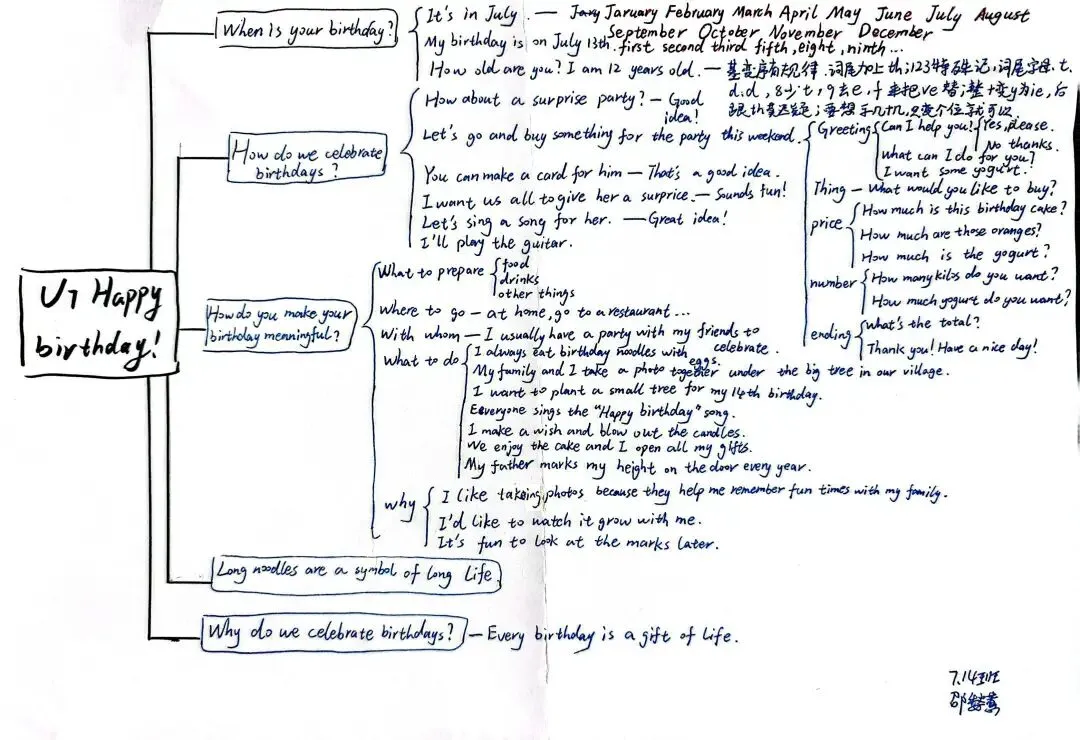 U7 Happy birthday!
When is your birthday?
It's in July. — January February March April May June July August
September October November December
My birthday is on July 13th. first second third fifth, eight, ninth...
How old are you? I am 12 years old. — 基变序有规律. 词尾加上th; 123特殊记, 词尾字母t.
d.d, 8少t, 9去e, f 来把ve替; 整十变y为ie, 后
跟th莫迟疑; 要想表示几十几, 只变个位就可以.
How do we celebrate birthdays?
How about a surprise party? — Good idea!
Let's go and buy something for the party this weekend.
Greeting
Can I help you? Yes, please.
No thanks.
What can I do for you?
I want some yogurt.
Thing — What would you like to buy?
price
How much is this birthday cake?
How much are those oranges?
How much is the yogurt?
number
How many kilos do you want?
How much yogurt do you want?
ending
What's the total?
Thank you! Have a nice day!
You can make a card for him — That's a good idea.
I want us all to give her a surprice. — Sounds fun!
Let's sing a song for her. — Great idea!
I'll play the guitar.
How do you make your birthday meaningful?
What to prepare
food
drinks
other things
Where to go — at home, go to a restaurant...
With whom — I usually have a party with my friends to celebrate.
What to do
I always eat birthday noodles with eggs.
My family and I take a photo together under the big tree in our village.
I want to plant a small tree for my 14th birthday.
Everyone sings the "Happy birthday" song.
I make a wish and blow out the candles.
We enjoy the cake and I open all my gifts.
My father marks my height on the door every year.
why
I like takeing photos because they help me remember fun times with my family.
I'd like to watch it grow with me.
It's fun to look at the marks later.
Long noodles are a symbol of long life.
Why do we celebrate birthdays? — Every birthday is a gift of life.
7.14班